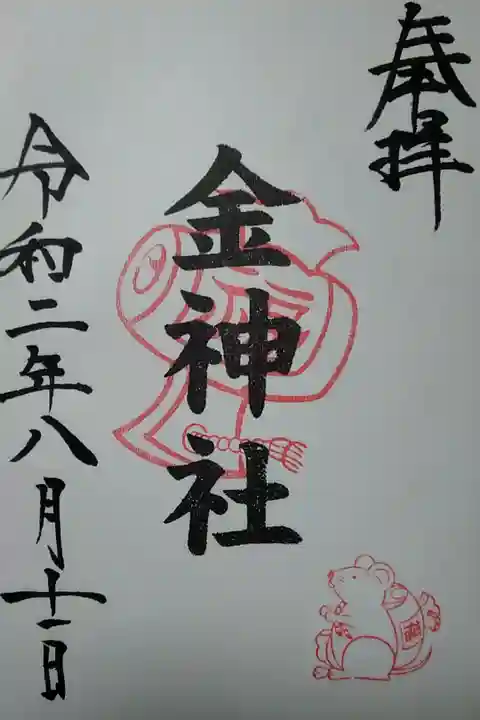 奉拝
金神社
令和二年八月十一日